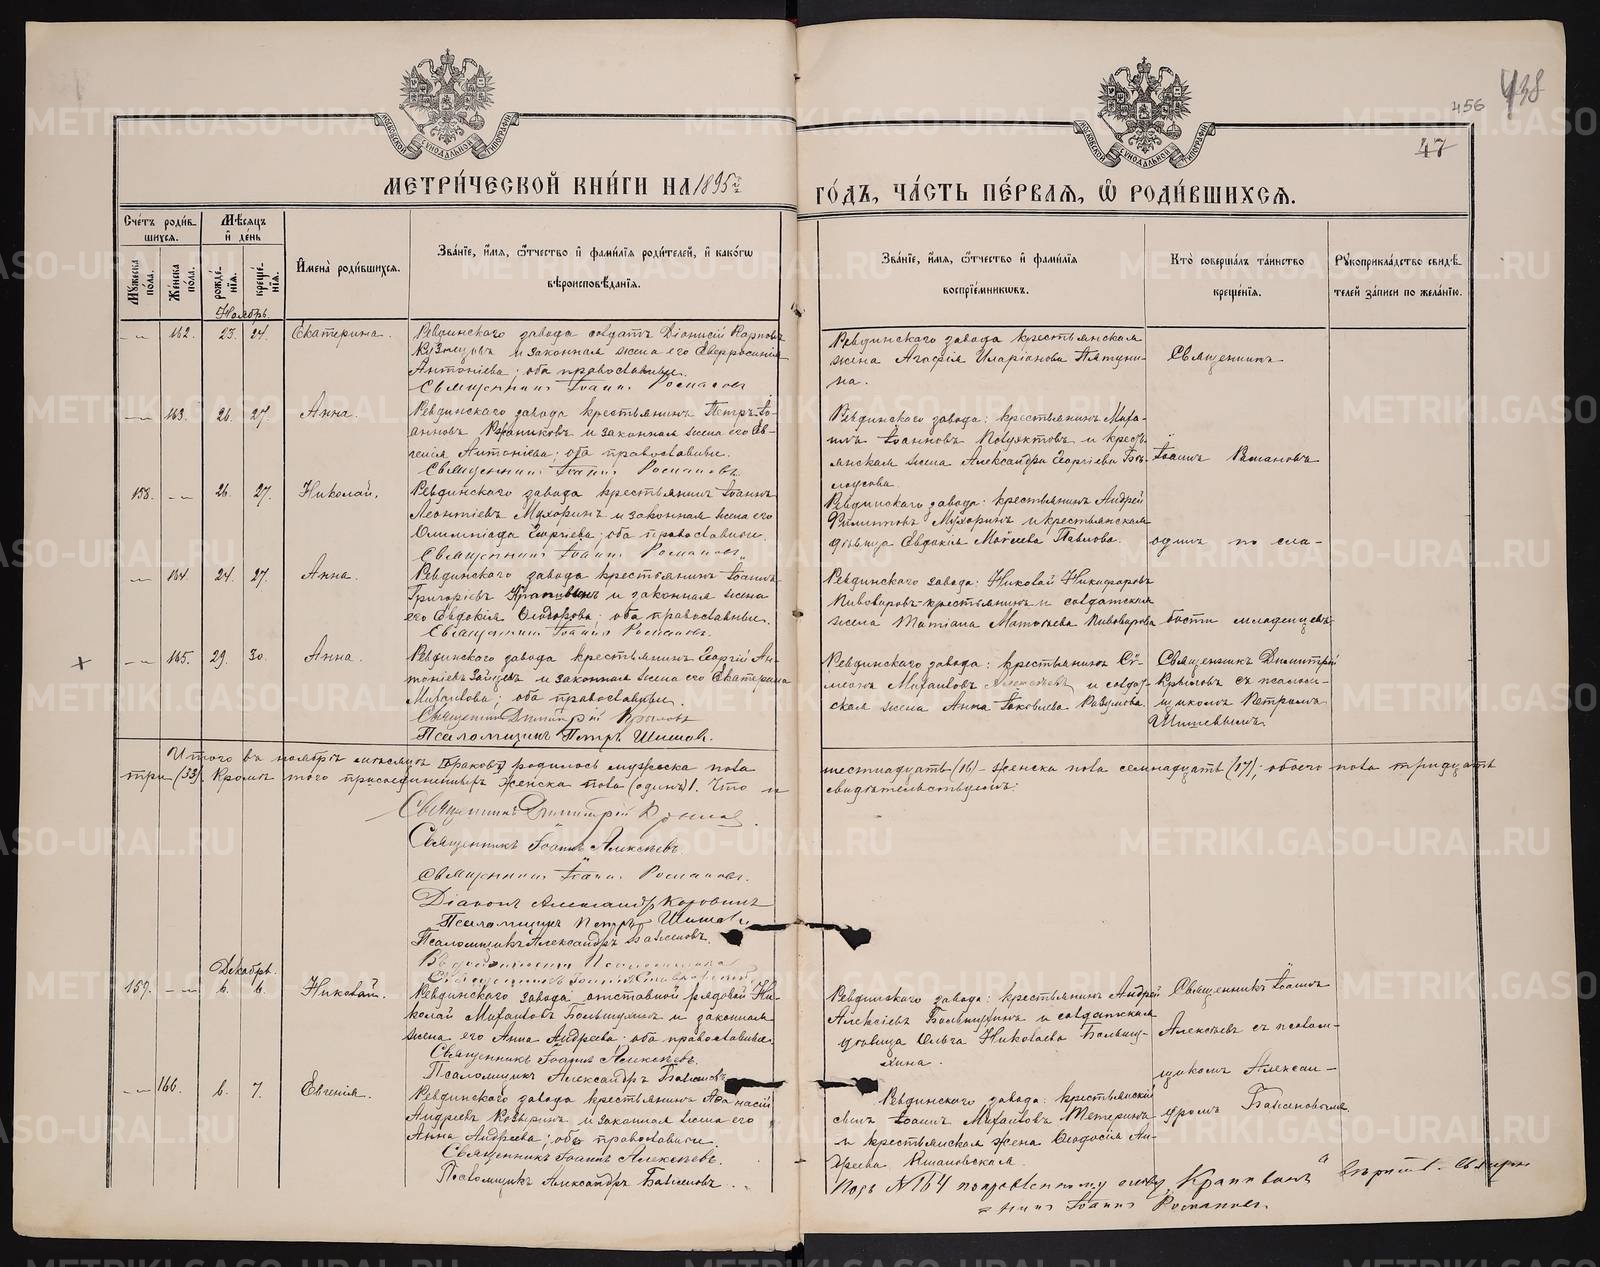 438
456
47
МОСКОВСКОЙ СѴНОДАЛЬНОЙ ТИПОГРАФІИ
МОСКОВСКОЙ СѴНОДАЛЬНОЙ ТИПОГРАФІИ
МЕТРИ́ЧЕСКОЙ КНИ́ГИ НА 1895й
ГО́ДЪ, ЧА́СТЬ ПЕ́РВАЯ, Ѡ҆ РОДИ́ВШИХСЯ.
Сче́тъ роди́в-
шихся.
Мꙋ́жеска по́ла.
Же́нска по́ла.
Мѣ́сяцъ и҆ де́нь
рожде́-нїя.
креще́-нїя.
И҆мена̀ роди́вшихся.
Зва́нїе, и҆́мя, ѻ҆́тчество и҆ фами́лїя роди́телей, и҆ како́гѡ
вѣроисповѣ́данїя.
Зва́нїе, и҆́мя, ѻ҆́тчество и҆ фами́лїя
воспрїе́мникѡвъ.
Кто̀ соверша́лъ та́инство
креще́нїя.
Рꙋкоприкла́дство свидѣ́-
телей за́писи по жела́нїю.
Ноябрь.
162. 23. 24. Екатерина.
Ревдинского завода солдатъ Діонисій Карповъ
Кузнецовъ и законная жена его Евфросинія
Антоніева; оба православные.
Священникъ Іоаннъ Романовъ
Ревдинского завода крестьянская
жена Агафія Иларіонова Пятуни-
на.
Священникъ
163. 26. 27. Анна.
Ревдинскаго завода крестьянинъ Петръ Іо-
анновъ и законная жена его Ев-
генія Антоніева; оба православные.
Священникъ Іоаннъ Романовъ.
Ревдинского завода: крестьянинъ Миха-
илъ Іоанновъ и кресть-
янская жена Александра Георгіева Бѣ-
лоусова.
Іоаннъ Романовъ
158. 26. 27. Николай.
Ревдинского завода крестьянинъ Іоаннъ
Леонтіевъ Мухоринъ и законная жена его
Олимпіада Георгіева; оба православные.
Священникъ Іоаннъ Романовъ
Ревдинского завода: крестьянинъ Андрей
Филиповъ Мухоринъ и крестьянская
дѣвица Евдокія Моисеева Павлова.
одинъ по сла-
164. 24. 27. Анна.
Ревдинского завода крестьянинъ Іоаннъ
Григоріевъ Крапивинъ и законная жена
его Евдокія Ѳеодорова; оба православные.
Священникъ Іоаннъ Романовъ.
Ревдинского завода: Николай Никифоровъ
Пивоваровъ-крестьянинъ и солдатская
жена Татіана Матѳеева Пивоварова
бости младенцевъ
165. 29. 30. Анна.
Ревдинского завода крестьянинъ Георгій Ан-
тоніевъ Зайцевъ и законная жена его Екатерина
Михаилова; оба православные.
Священникъ Димитрій Крыловъ
Псаломщикъ Петръ Шишовъ.
Ревдинского завода: крестьянинъ Сѵ-
меонъ Михаиловъ Алексѣевъ и солдат-
ская жена Анна Іаковлева Разумова.
Священникъ Димитрій
Крыловъ съ псалом-
щикомъ Петромъ
Шишевымъ.
Итого въ ноябрѣ мѣсяцѣ родилось мужеска пола
шестнадцать (16) - женска пола семнадцать (17); обоего пола тридцать
три (33). Кромѣ того присоединенныхъ женска пола (одинъ) 1. Что и
свидѣтельствуемъ:
Священникъ Димитрій Крыловъ.
Священникъ Іоаннъ Алексѣевъ.
Священникъ Іоаннъ Романовъ.
Діаконъ Александръ Коровинъ
Псаломщикъ Петръ Шишовъ.
Псаломщикъ Александръ Баженовъ.
Декабрь.
159. 6. 6. Николай.
Ревдинского завода отставной рядовой Ни-
колай Михаиловъ Большухинъ и законная
жена его Анна Андреева; оба православные.
Священникъ Іоаннъ Алексѣевъ.
Псаломщикъ Александръ Баженовъ
Ревдинского завода: крестьянинъ Андрей
Алексіевъ Большухинъ и солдатская
дѣвица Ольга Николаева Большу-
хина.
Священникъ Іоаннъ
Алексѣевъ съ псалом-
щикомъ Алексан-
дромъ Баженовымъ.
166. 6. 7. Евгенія.
Ревдинского завода крестьянинъ Аѳанасій
Андреевъ Козыринъ и законная жена его
Анна Андреева; оба православные.
Священникъ Іоаннъ Алексѣевъ.
Псаломщикъ Александръ Баженовъ.
Ревдинского завода: крестьянскій
сынъ Іоаннъ Михаиловъ Тетеринъ
и крестьянская жена Ѳеодосія Ан-
дреева
Подъ №164 поправленному слову „Крапивинъ" вѣрить. Священ-
никъ Іоаннъ Романовъ.
METRIKI.GASO-URAL.RU